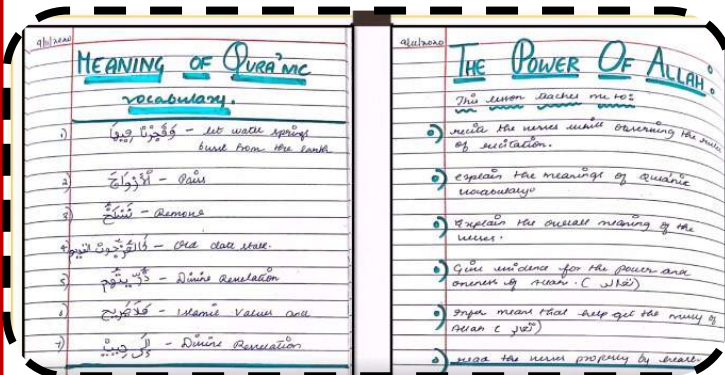 9/11/2020
MEANING OF QURA'NIC
vocabulary.
1) وَفَجَّرْنَا فِيهَا - let water springs
burst from the earth
2) الْأَزْوَاجَ - Pairs
3) نَسْلَخُ - Remove
4) كَالْعُرْجُونِ الْقَدِيمِ - Old date stalk.
5) - Divine Revelation
6) - Islamic Values and
7) - Divine Revelation
9/11/2020
THE POWER OF ALLAH.
This lesson teaches me to:
recite the verses while observing the rules
of recitation.
explain the meanings of Quranic
vocabulary
Explain the overall meaning of the
verses.
Give evidence for the power and
oneness of Allah. (تعالى)
Infer means that help get the mercy of
Allah (تعالى)
read the verses properly by heart.